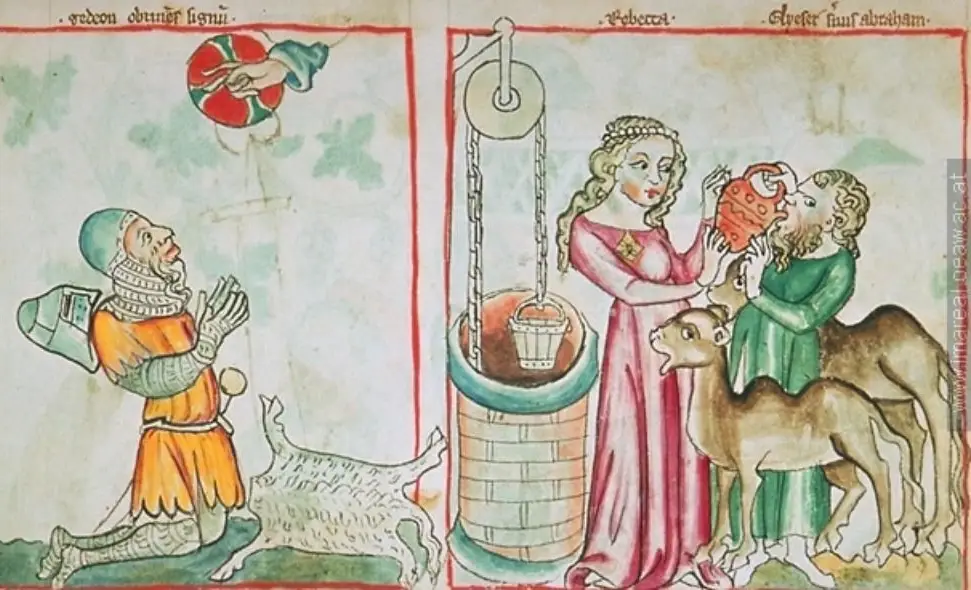 gedeon obtinēs signū.
Rebecca. Elyeser suus abraham.
www.imareal.oeaw.ac.at